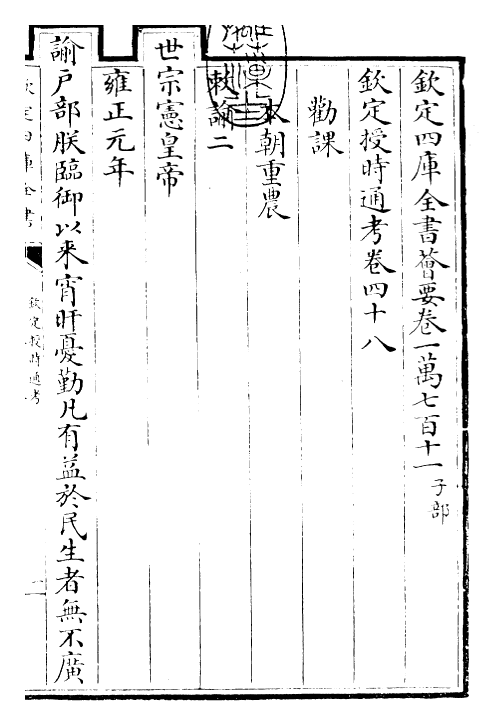 欽定四庫全書薈要卷一萬七百十一 子部
欽定授時通考卷四十八
勸課
本朝重農
敕諭二
世宗憲皇帝
雍正元年
諭戶部朕臨御以來宵旰憂勤凡有益於民生者無不廣
欽定四庫全書
欽定授時通考